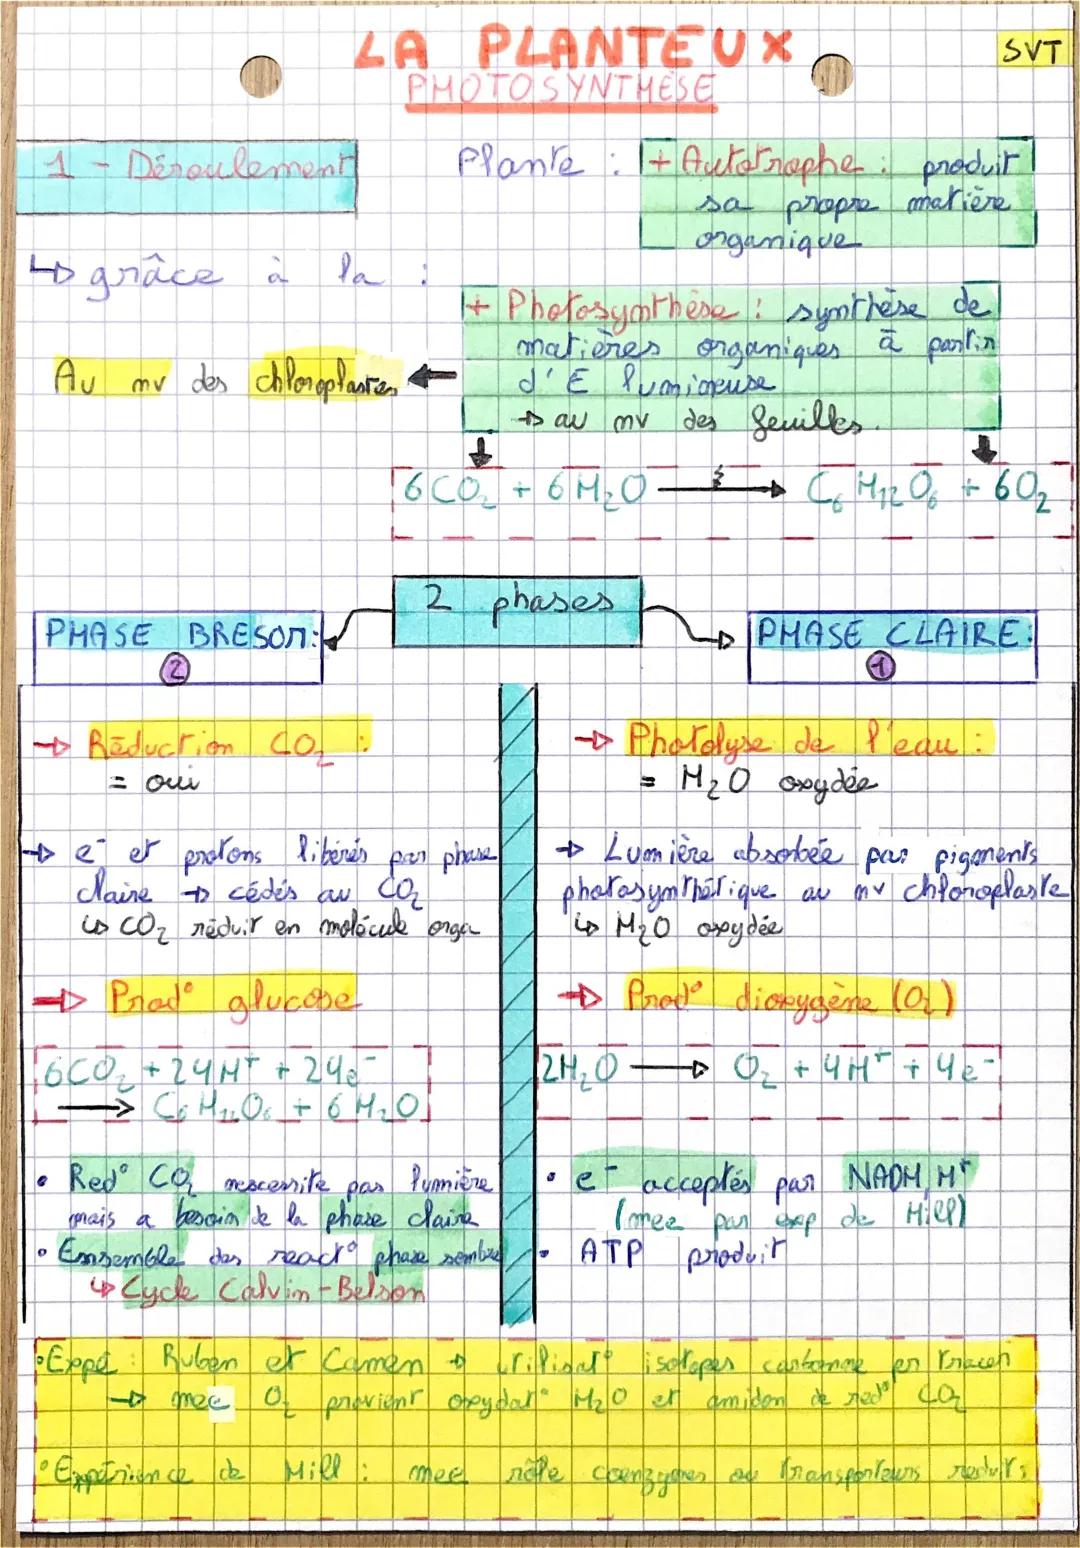 LA PLANTEUX
SVT
PHOTOSYNTHÈSE
1 - Déroulement
Plante :
+ Autotrophe : produit
sa propre matière
organique
↳ grâce à la :
+ Photosynthèse : synthèse de
matières organiques à partir
d'E lumineuse
→ au nv des feuilles.
Au nv des chloroplastes
6CO₂ + 6H₂O → C₆H₁₂O₆ + 6O₂
2 phases
PHASE BRESON:
②
→ Réduction CO₂ :
= oui
→ e⁻ et protons libérés par phase
claire → cédés au CO₂
↳ CO₂ réduit en molécule orga
→ Prod° glucose
6CO₂ + 24H⁺ + 24e⁻
→ C₆H₁₂O₆ + 6H₂O
• Red° CO₂ nescessite pas lumière
mais a besoin de la phase claire
• Ensemble des react° phase sombre
↳ Cycle Calvin-Belson
PHASE CLAIRE:
①
→ Photolyse de l'eau :
= H₂O oxydée
→ Lumière absorbée par pigments
photosynthétique au nv chloroplaste
↳ H₂O oxydée
→ Prod° dioxygène (O₂)
2H₂O → O₂ + 4H⁺ + 4e⁻
• e⁻ acceptés par NADH, H⁺
(mee par exp de Hill)
• ATP produit
• Expé : Ruben et Camen → utilisat° isotopes carbonne en tracer
→ mee O₂ provient oxydat° H₂O et amidon de red° CO₂
• Expérience de Hill : mee rôle coenzymes ou transporteurs réduits